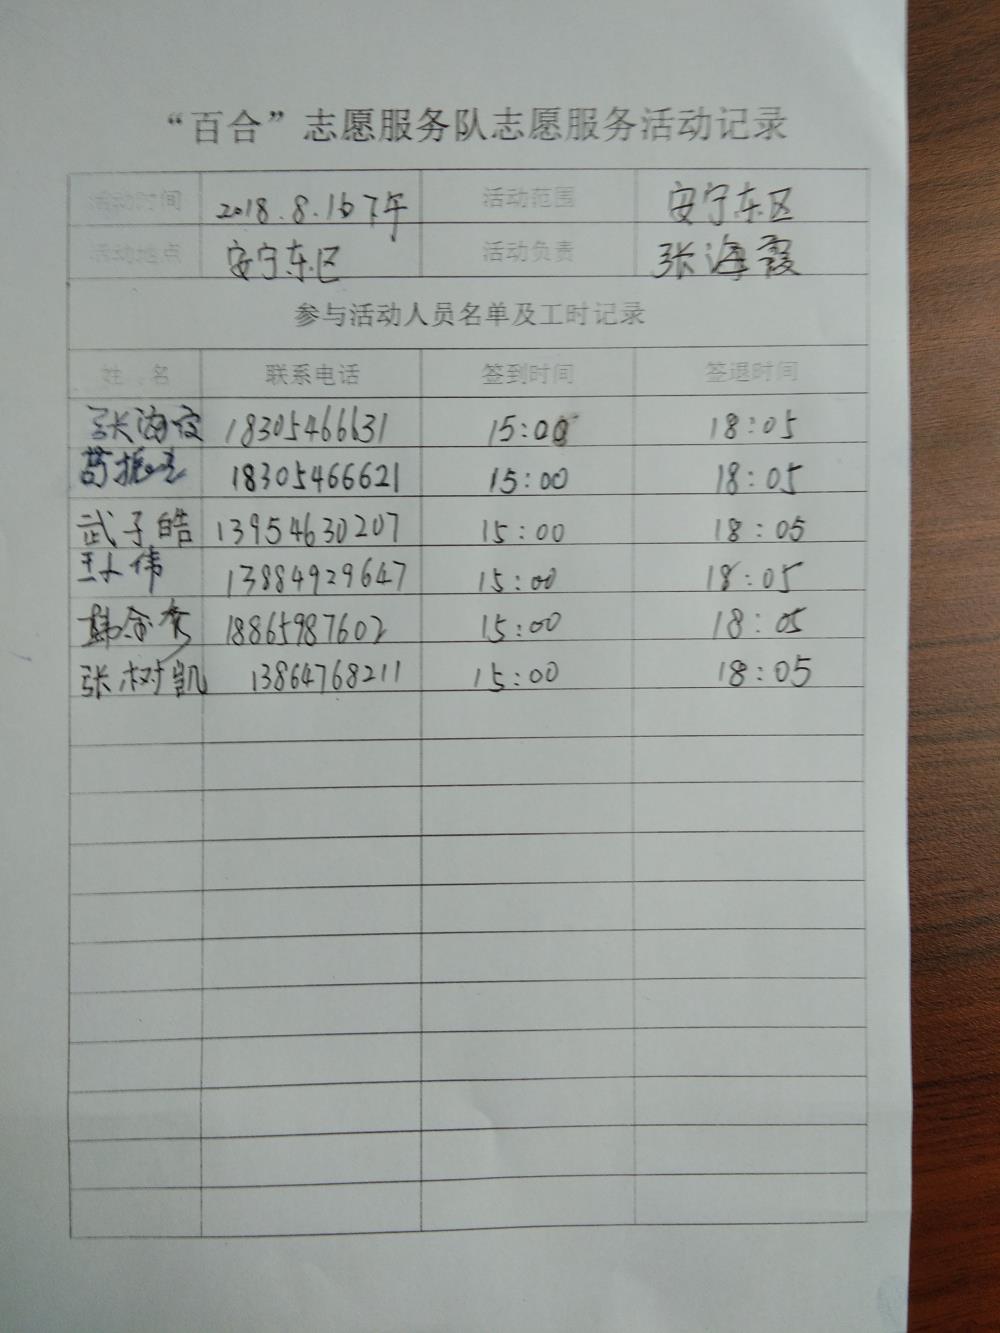 “百合”志愿服务队志愿服务活动记录
活动时间 2018.8.16下午 活动范围 安宁东区
活动地点 安宁东区 活动负责 张海霞
参与活动人员名单及工时记录
姓 名 联系电话 签到时间 签退时间
张海霞 18305466631 15:00 18:05
18305466621 15:00 18:05
武子皓 13954630207 15:00 18:05
伟 13884929647 15:00 18:05
韩金秀 18865987602 15:00 18:05
张树凯 13864768211 15:00 18:05